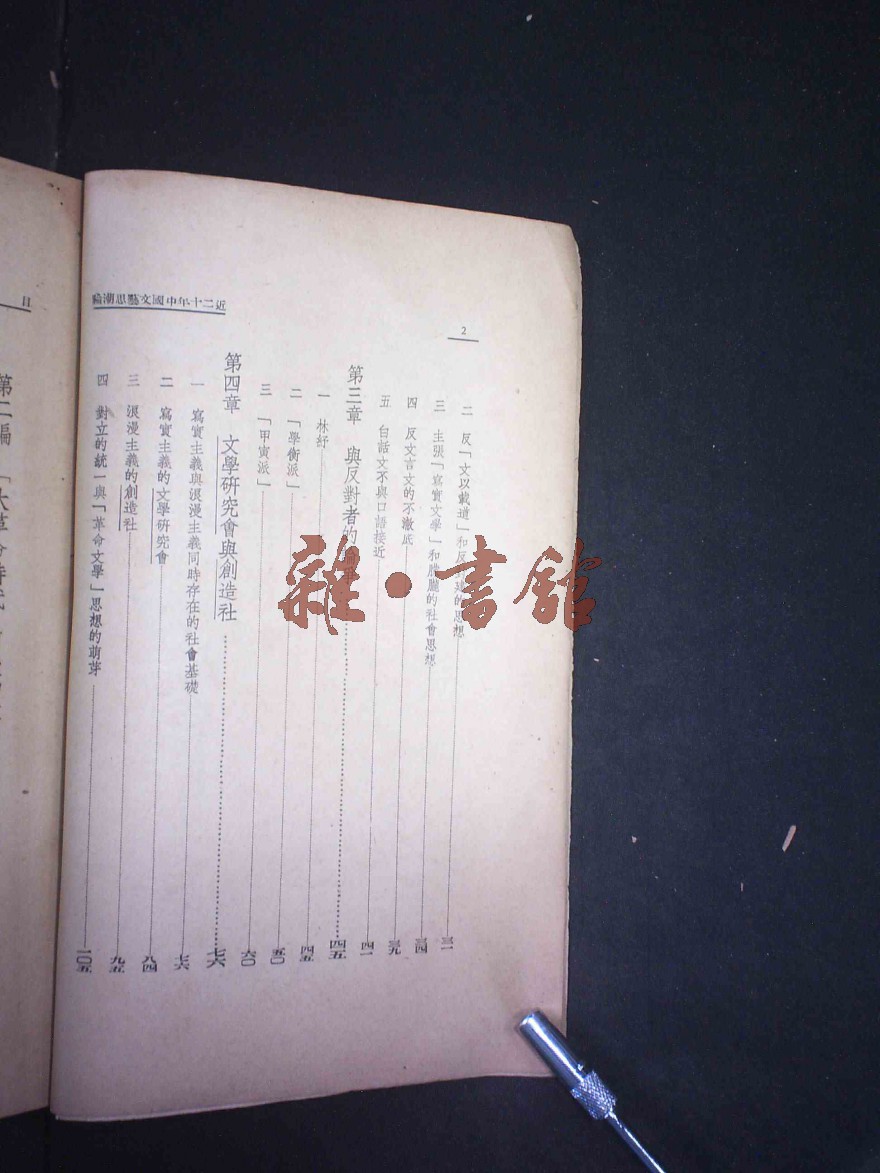 近二十年中國文藝思潮論
2
二 反「文以載道」和反 的思想 三一
三 主張「寫實文學」和朦朧的社會思想 三四
四 反文言文的不澈底 三九
五 白話文不與口語接近 四一
第三章 與反對者的 四五
一 林紓 四五
二 「學衡派」 五〇
三 「甲寅派」 六〇
第四章 文學研究會與創造社 七六
一 寫實主義與浪漫主義同時存在的社會基礎 七六
二 寫實主義的文學研究會 八四
三 浪漫主義的創造社 九五
四 對立的統一與「革命文學」思想的萌芽 一〇五
目
第二編 「大革命時代
雜·書館